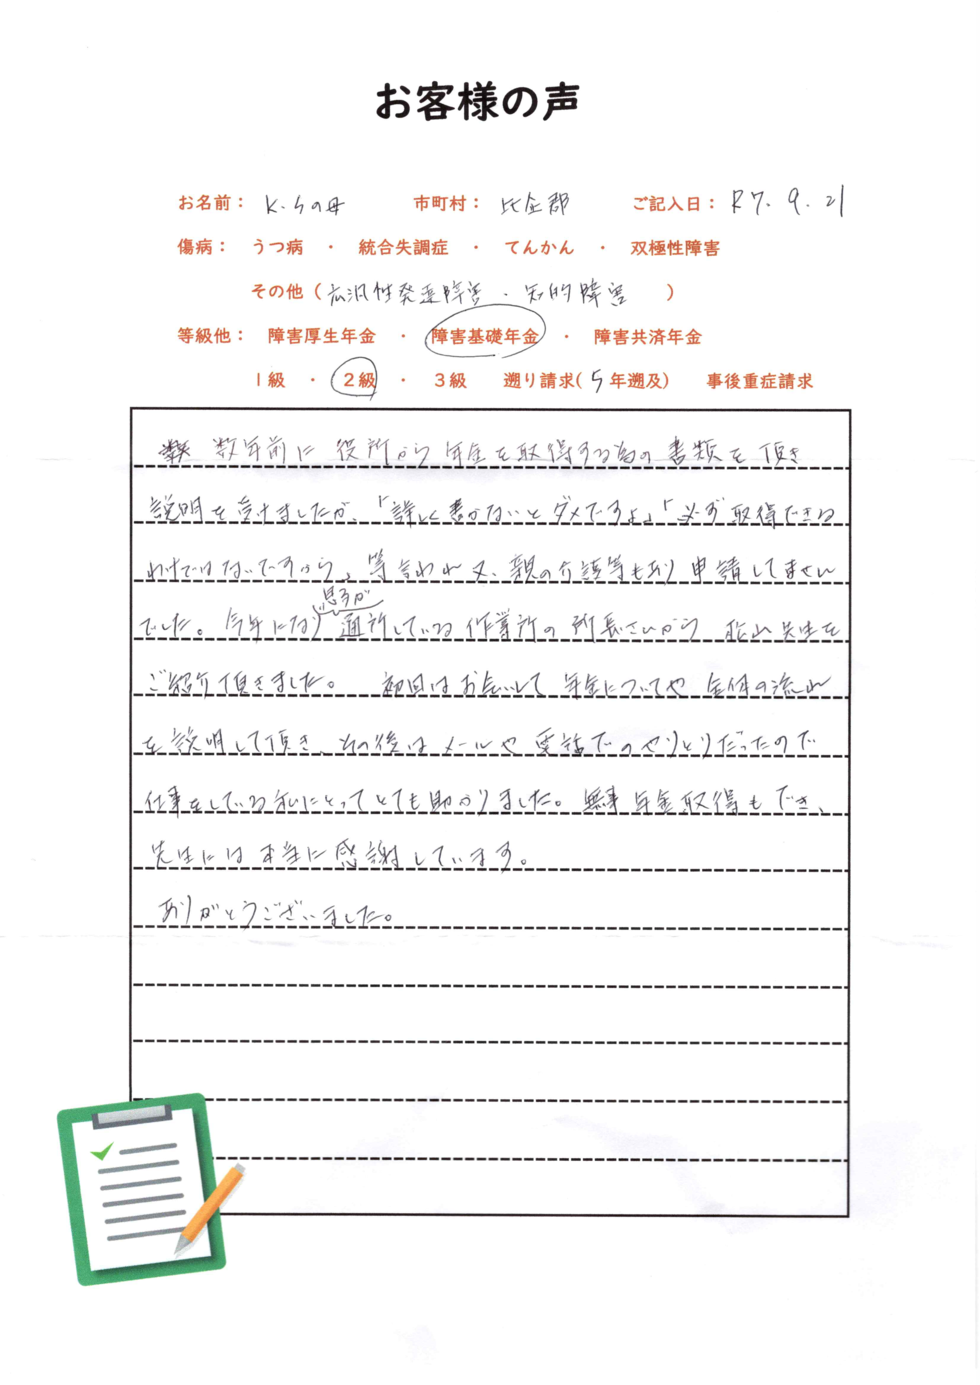 お客様の声
お名前： K.Sの母 市町村： 比企郡 ご記入日： R7. 9. 21
傷病： うつ病 ・ 統合失調症 ・ てんかん ・ 双極性障害
その他（広汎性発達障害・知的障害 ）
等級他： 障害厚生年金 ・ 障害基礎年金 ・ 障害共済年金
1級 ・ 2級 ・ 3級 遡り請求( 5 年遡及) 事後重症請求
数年前に役所から年金を取得する為の書類を頂き
説明を受けましたが、「詳しく書かないとダメですよ」「必ず取得できる
わけではないですから」等言われ又、親の介護等もあり申請してません
息子が
でした。今年になり通所している作業所の所長さんから松山先生を
ご紹介頂きました。 初回はお会いして年金についてや全体の流れ
を説明して頂き、その後はメールや電話でのやりとりだったので
仕事をしている私にとってとても助かりました。無事年金取得もでき、
先生には本当に感謝しています。
ありがとうございました。